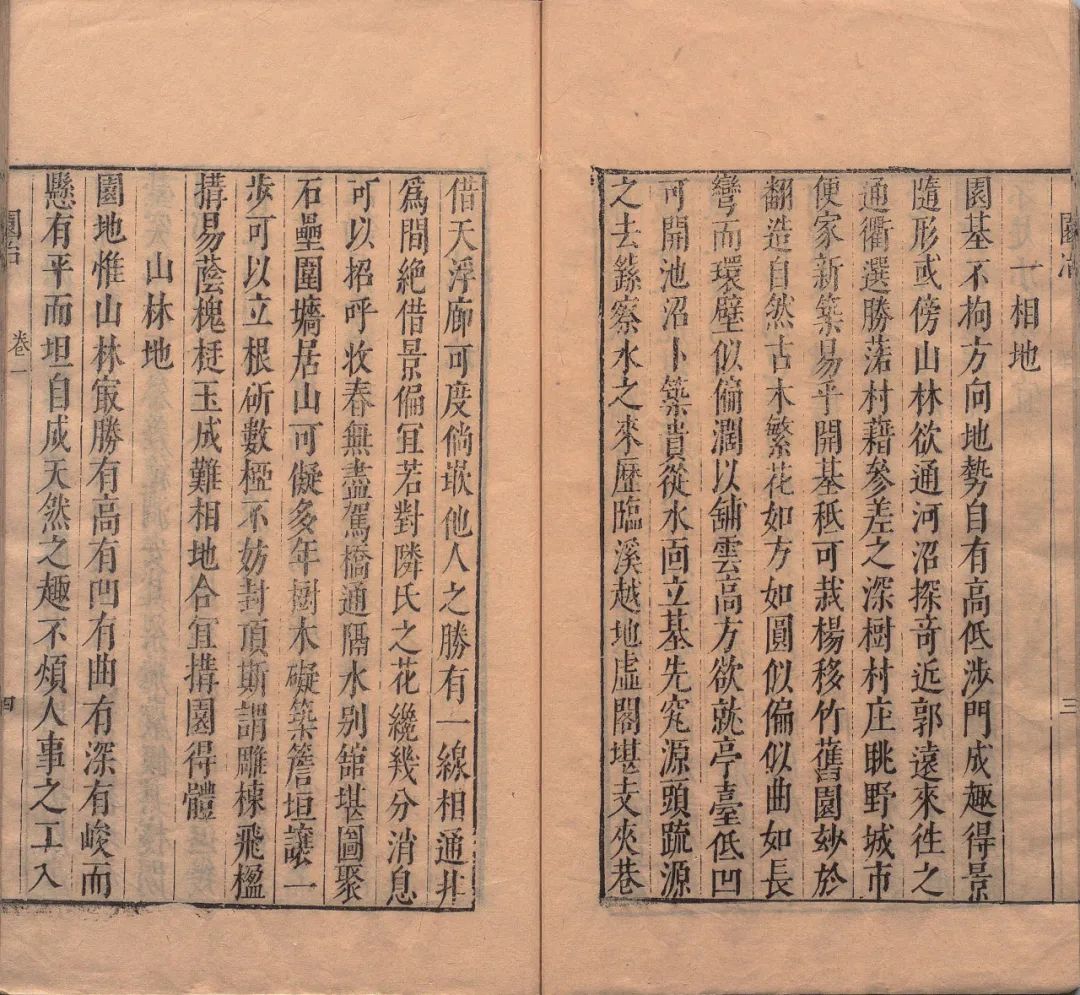 園冶 三
一相地
園基不拘方向地勢自有高低涉門成趣得景
隨形或傍山林欲通河沼探奇近郭遠來往之
通衢選勝落村藉參差之深樹村庄眺野城市
便家新築易乎開基秪可栽楊移竹舊園妙於
翻造自然古木繁花如方如圓似偏似曲如長
彎而環璧似偏濶以鋪雲高方欲就亭臺低凹
可開池沼卜築貴從水面立基先究源頭疏源
之去繇察水之來歷臨溪越地虛閣堪支夾巷
借天浮廊可度倘嵌他人之勝有一線相通非
爲間絶借景偏宜若對隣氏之花纔幾分消息
可以招呼收春無盡駕橋通隔水别舘堪圖聚
石壘圍墻居山可儗多年樹木礙築簷垣讓一
步可以立根斫數椏不妨封頂斯謂雕棟飛楹
搆易蔭槐挺玉成難相地合宜搆園得體
山林地
園地惟山林㝡勝有高有凹有曲有深有峻而
懸有平而坦自成天然之趣不煩人事之工入
園冶 卷一 四